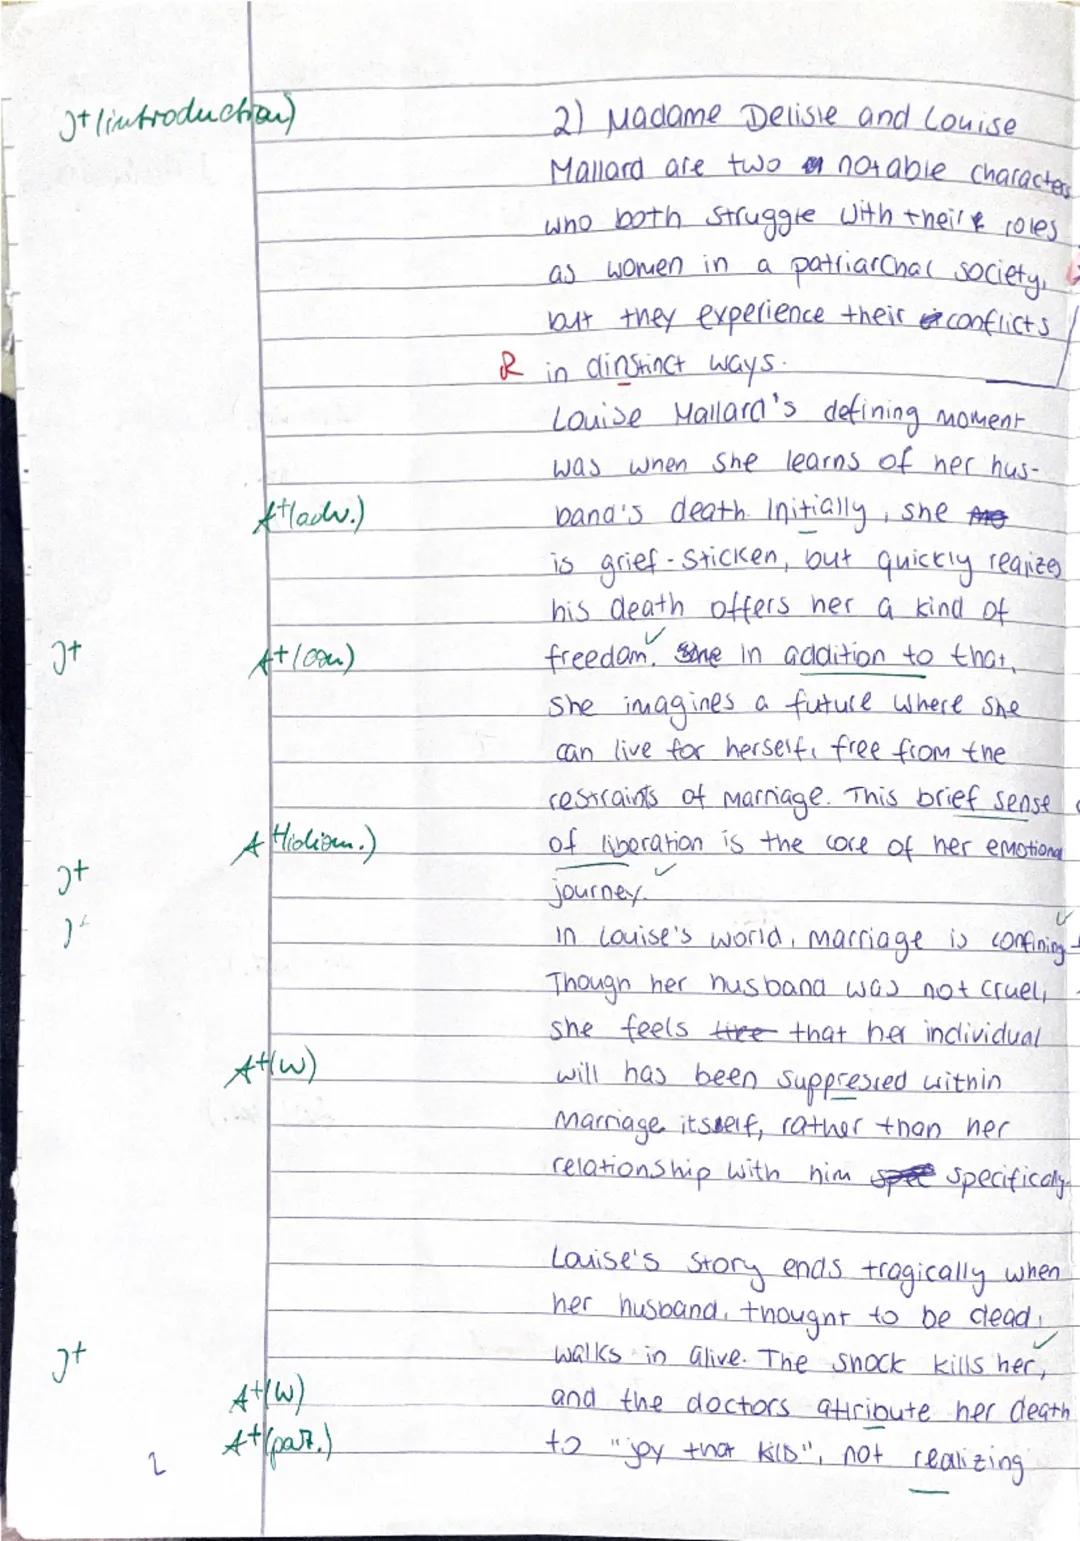 J+(introduction)
2) Madame Delisle and Louise
Mallard are two notable characters
who both struggle with their roles
as women in a patriarchal society,
but they experience their conflicts
R in dinstinct ways.
Louise Mallard's defining moment
was when she learns of her hus-
A+(adv.) band's death. Initially, she
is grief-sticken, but quickly realizes
his death offers her a kind of
J+ A+(con) freedom. In addition to that,
she imagines a future where she
can live for herself, free from the
restraints of marriage. This brief sense
A+(idiom.) of liberation is the core of her emotional
J+ journey.
J+ In Louise's world, marriage is confining
Though her husband was not cruel,
she feels that her individual
A+(W) will has been suppressed within
marriage itself, rather than her
relationship with him specificaly
Louise's story ends tragically when
her husband, thought to be dead,
J+ walks in alive. The shock kills her,
A+(W) and the doctors attribute her death
A+(part.) to "joy that kills", not realizing
2